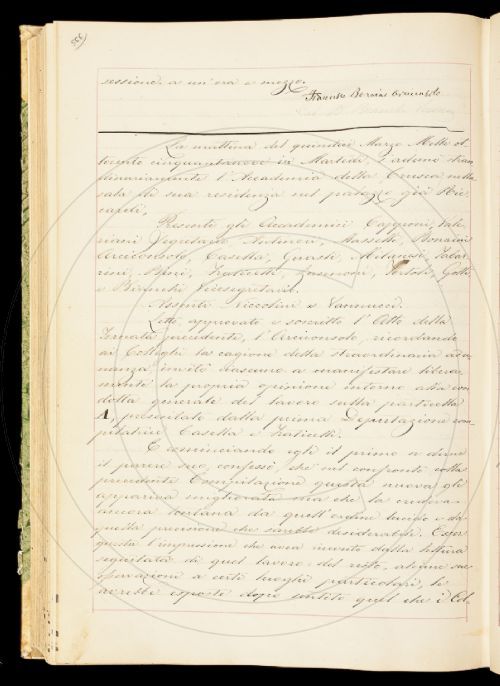 335
sessione. a un'ora e mezzo.
Francesco Bonaini Arciconsolo
La mattina del quindici Marzo Mille ot-
tocento cinquantanove in Martedì, s'adunò stra-
ordinariamente l'Accademia della Crusca nella
sala di sua residenza nel palazzo già Ric-
cardi,
Presenti gli Accademici Capponi, Vale-
riani Segretario, Bonaini
Arciconsolo, Casella, Guasti, Milanesi, Tabar-
rini, Bini, Fraticelli, Gotti
e Bianchi Vicesegretario.
Assenti Niccolini e Vannucci.
Letto, approvato e soscritto l'Atto della
Tornata precedente, l'Arciconsolo, ricordando
ai Colleghi la cagione della straordinaria adu-
nanza invitò ciascuno a manifestare libera-
mente la propria opinione intorno alla con-
dotta generale del lavoro sulla particella
A, presentato dalla prima Deputazione com-
pilatrice Casella e Fraticelli.
E cominciando egli il primo a dire
il parere suo, confessò che nel confronto colla
precedente Compilazione questa nuova gli
appariva migliorata ma che la credeva
ancora lontana da quell'ordine lucido e da
quella precisione che sarebbe desiderabile. Esser
questa l'impressione che avea avuto dalla lettura
seguitata di quel lavoro: del resto, alcune sue
osservazioni a certi luoghi particolari, le
avrebbe esposte dopo sentito quel che i Col-